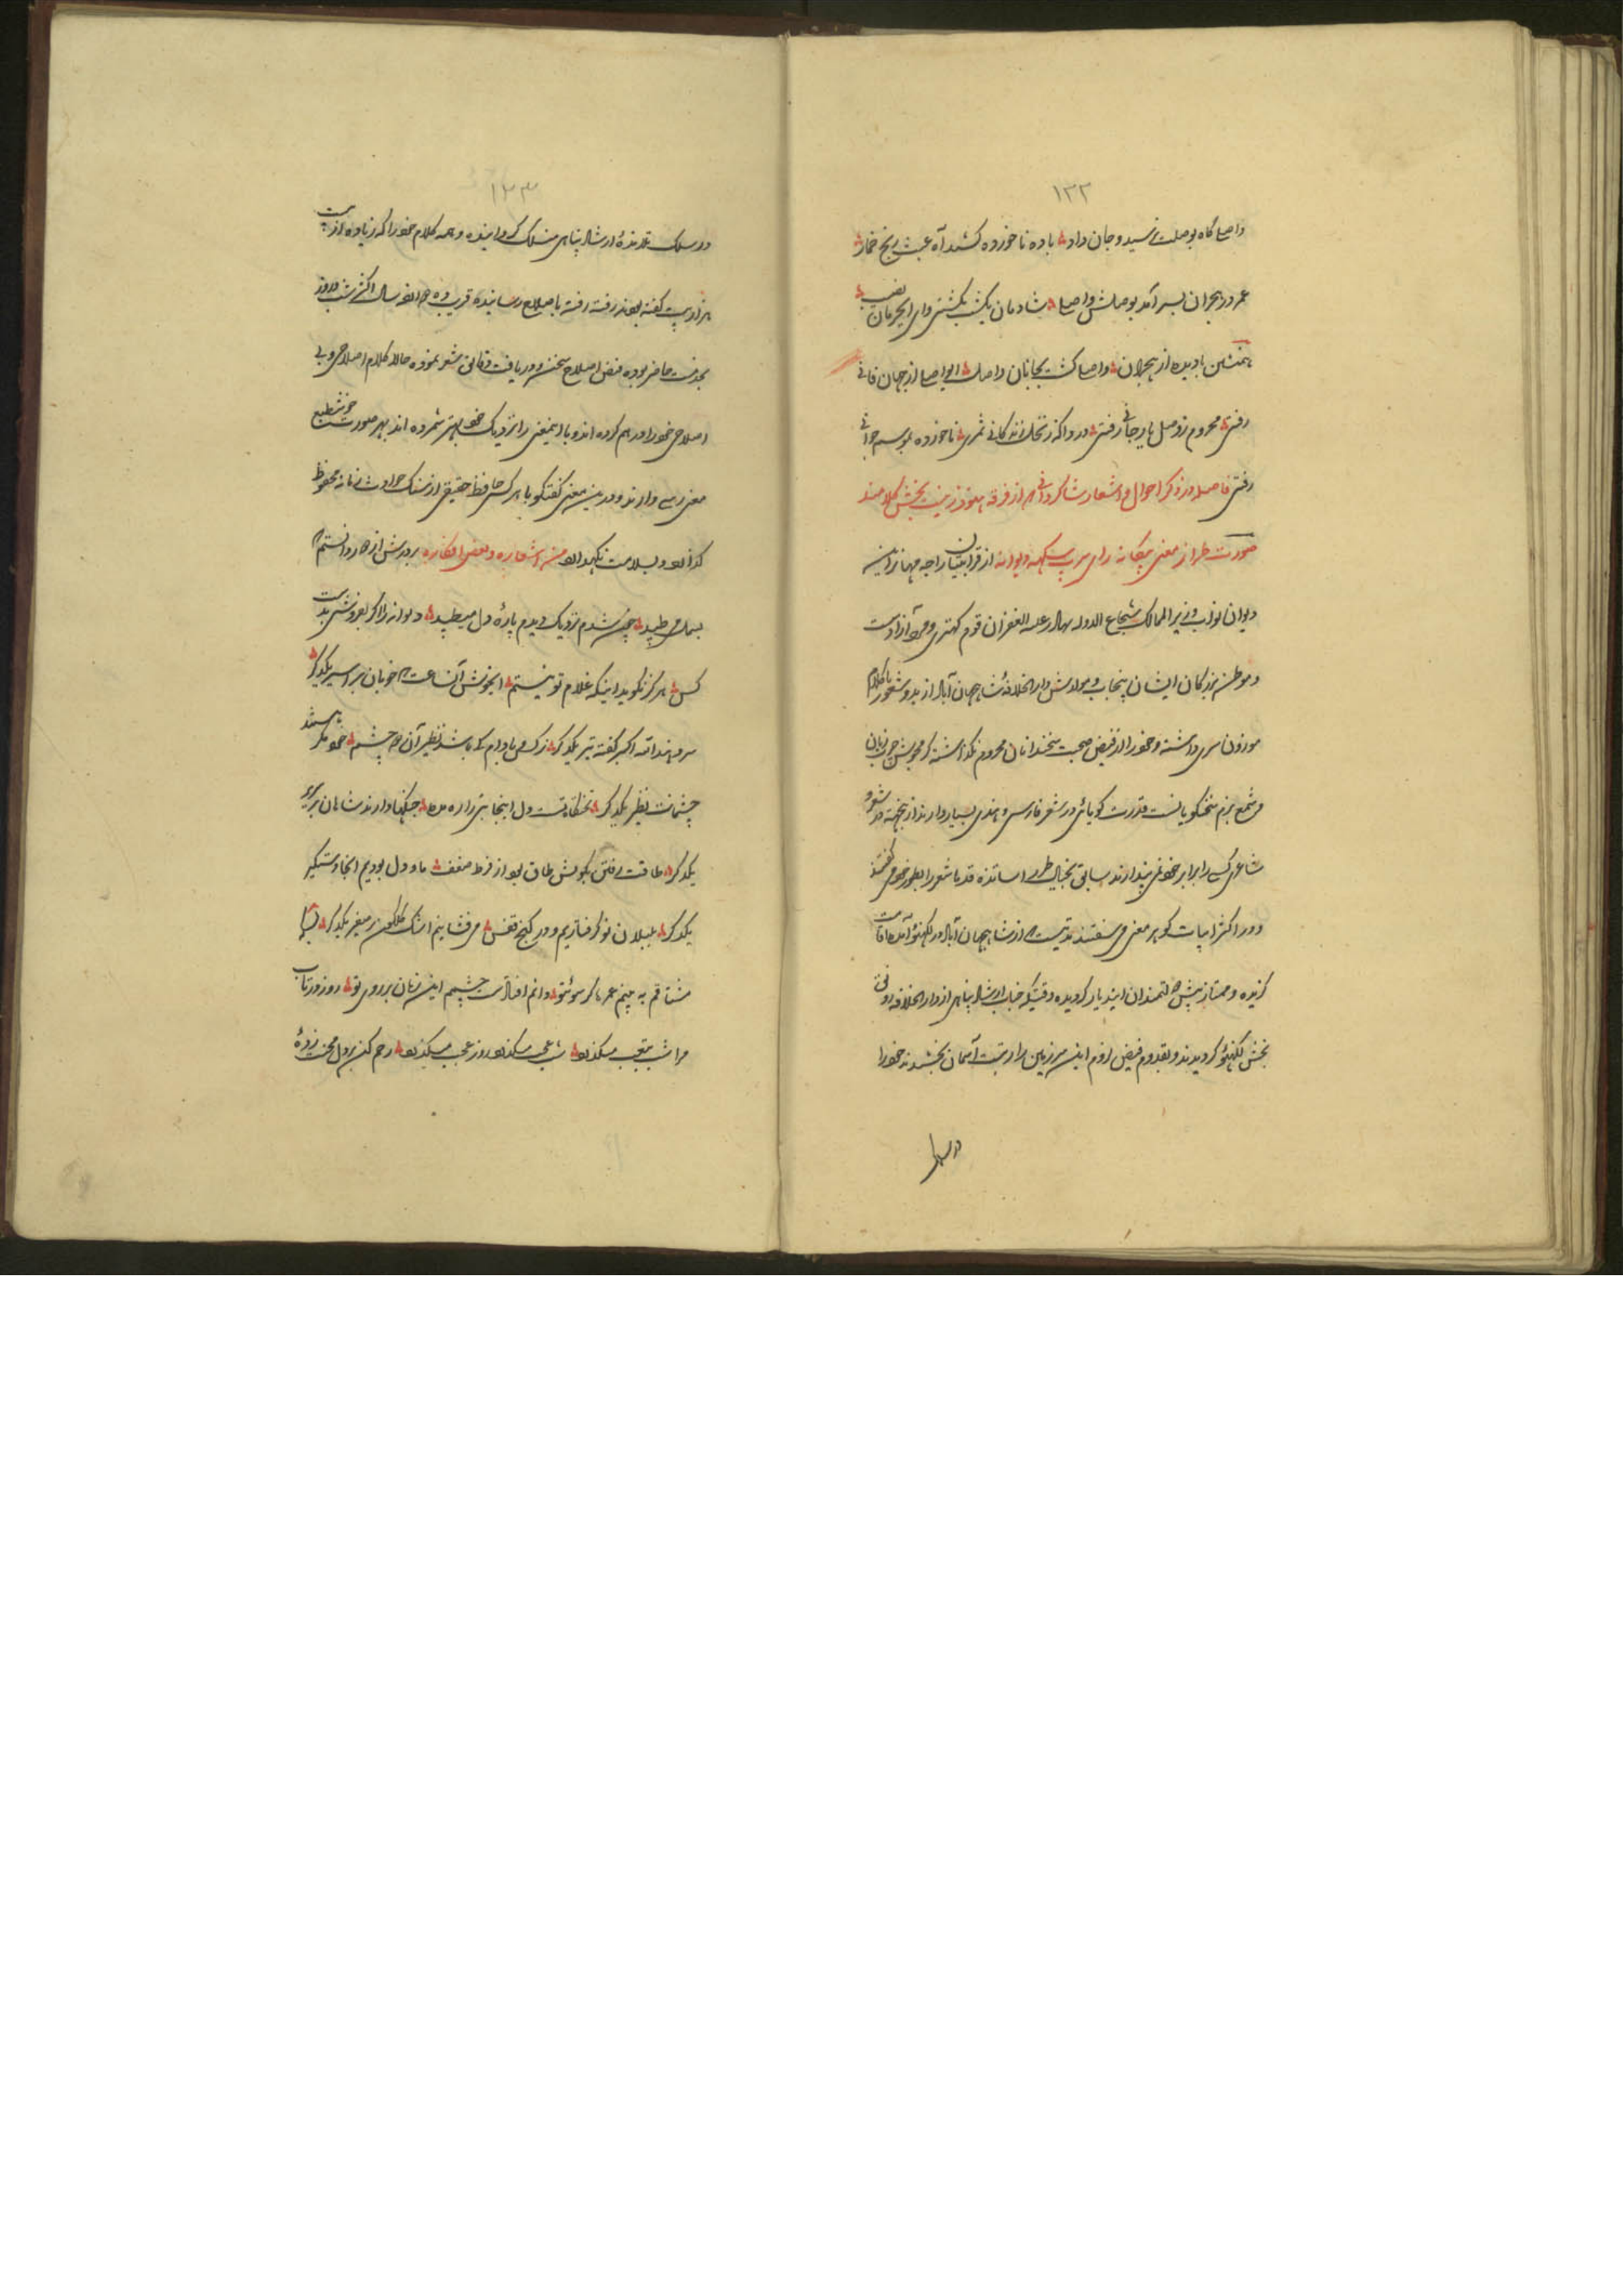 ۱۳۲
واصل گاه بوصلت نرسید و جان داد باده ناخورده کشید آه عبث رنج خمار
عمر در هجران بسر آمد بوصلش واصل شادمان یکشب نگشتی وای ای حرمان نصیب
همنشین بادیده از هجران واصل گشت بجانان واصل ای واصل از جهان فانی
رفتی محروم ز وصل یار جانی رفتی دردا که ز نخل زندگانی ثمری ناخورده بموسم جوانی
رفتی فاصله در ذکر احوال و اشعار شاگردانی که از فرقه هنود زینت بخش کلامند
صورت طراز معنی بیگانه رای سرب سکهه دیوانه از قرابتیان راجه مهانراین
دیوان نواب وزیر الممالک شجاع الدوله بهادر علیه الغفران قوم کهتری و مرد آزادست
و موطن بزرگان ایشان پنجاب و مولدش دار الخلافهٔ شاهجهان آباد از بدو شعور با کلام
موزون سری داشته و خود را از فیض صحبت سخندانان محروم نگذاشته گرمجوش چرب زبان
و شمع بزم سخنگویانست قدرت گویائی در شعر فارسی و هندی بسیار دارند از بسکه در شعر و
شاعری کسی را برابر خود نمی پندارند سابق بخیال طرز اساتذه قدما شعر را بطور خود می گفتند
و در اکثر ابیات گوهر معنی می سفتند مدتیست که از شاهجهان آباد در لکهنؤ آمده اقامت
گزیده و ممتاز پیش دولتمندان این دیار گردیده وقتیکه جناب ارشاد پناهی از دار الخلافه رونق
بخش لکهنؤ گردیدند و بقدوم فیض لزوم این سرزمین را رتبت آسمان بخشیدند خود را
در سلک
۱۳۳
در سلک تلامذهٔ ارشاد پناهی منسلک گردانیده و همه کلام خود را که زیاده از بیست
هزار بیت گفته بودند رفته رفته باصلاح رسانیده قریب ده دوازده سال اکثر شب و روز
بخدمت حاضر بوده فیض اصلاح سخن و دریافت دقائق شعر نموده حالا کلام اصلاحی و بی
اصلاحی خود را درهم کرده اند و با اینمعنی را نزدیک خود بهتر شمرده اند بهر صورت خوش طبع
معنی رسی دارند و درین معنی گفتگو با هر کس حافظ حقیقی از سنگ حوادث زمانه محفوظ
گذارد و بسلامت نگهدارد من اشعاره و بعض افکاره بر درش از دور دانستم که
بسمل می طپید چون شدم نزدیک دیدم پارهٔ دل میطپید دیوانه را اگر بفروشی بدست
کس هرگز نگوید اینکه غلام تو نیستم ای خوش آن ساعت که خوبان بر اسیر یکدگر
سرو نهند الله اکبر گفته تیر یکدگر نرگس و بادام کی باشد نظیر آن دو چشم خود مگر باشند
چشمانت نظیر یکدگر تختگاه تست دل اینجا بتی را ره مده جنگها دارند شاهان بر سریر
یکدگر طاقت رفتن بکویش طاق بود از فرط ضعف ما و دل بودیم آنجا دستگیر
یکدگر بلبلان نو گرفتاریم و در کنج قفس می فشانیم اشک گلگون بر صفیر یکدگر
مشتاقم به بینم عمرها گر سوی تو دانم افتادست چشم این زمان بر روی تو روز در تاب
مرا شب بتعب میگذرد شب عجب میگذرد روز عجب میگذرد رحم کن بر دل محنت زدهٔ